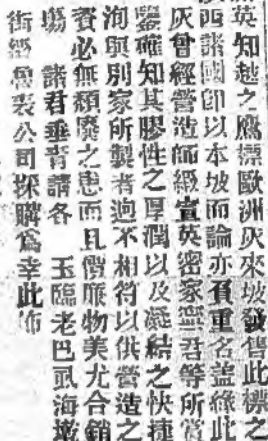 英知越之鷹標歐洲灰來坡發售此標之
西諸國卽以本坡而論亦負重名盖緣此
灰曾經營造師緞宣英密家寧君等所嘗
鑒確知其膠性之厚潤以及凝結之快捷
洵與別家所製者逈不相符以供營造之
賓必無頹廢之患而且價廉物美尤合銷
塲 諸君垂青請各 玉臨老巴虱海墘
街經魯裴公司採購爲幸此佈